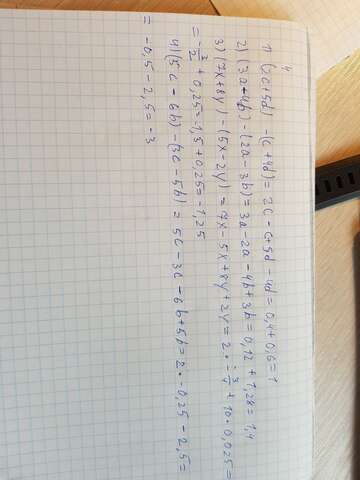 4
1) (2c+5d) - (c+4d) = 2c - c+5d - 4d = 0,4+0,6=1
2) (3a-4b) - (2a - 3b) = 3a - 2a - 4b + 3b = 0,12 + 1,28 = 1,4
3) (7x+8y) - (5x - 2y) = 7x - 5x + 8y + 2y = 2 · - 3/4 + 10 · 0,025 =
= - 3/2 + 0,25 = -1,5 + 0,25 = - 1,25
4) (5c - 6b) - (3c - 5b) = 5c - 3c - 6b + 5b = 2 · - 0,25 - 2,5 =
= - 0,5 - 2,5 = - 3